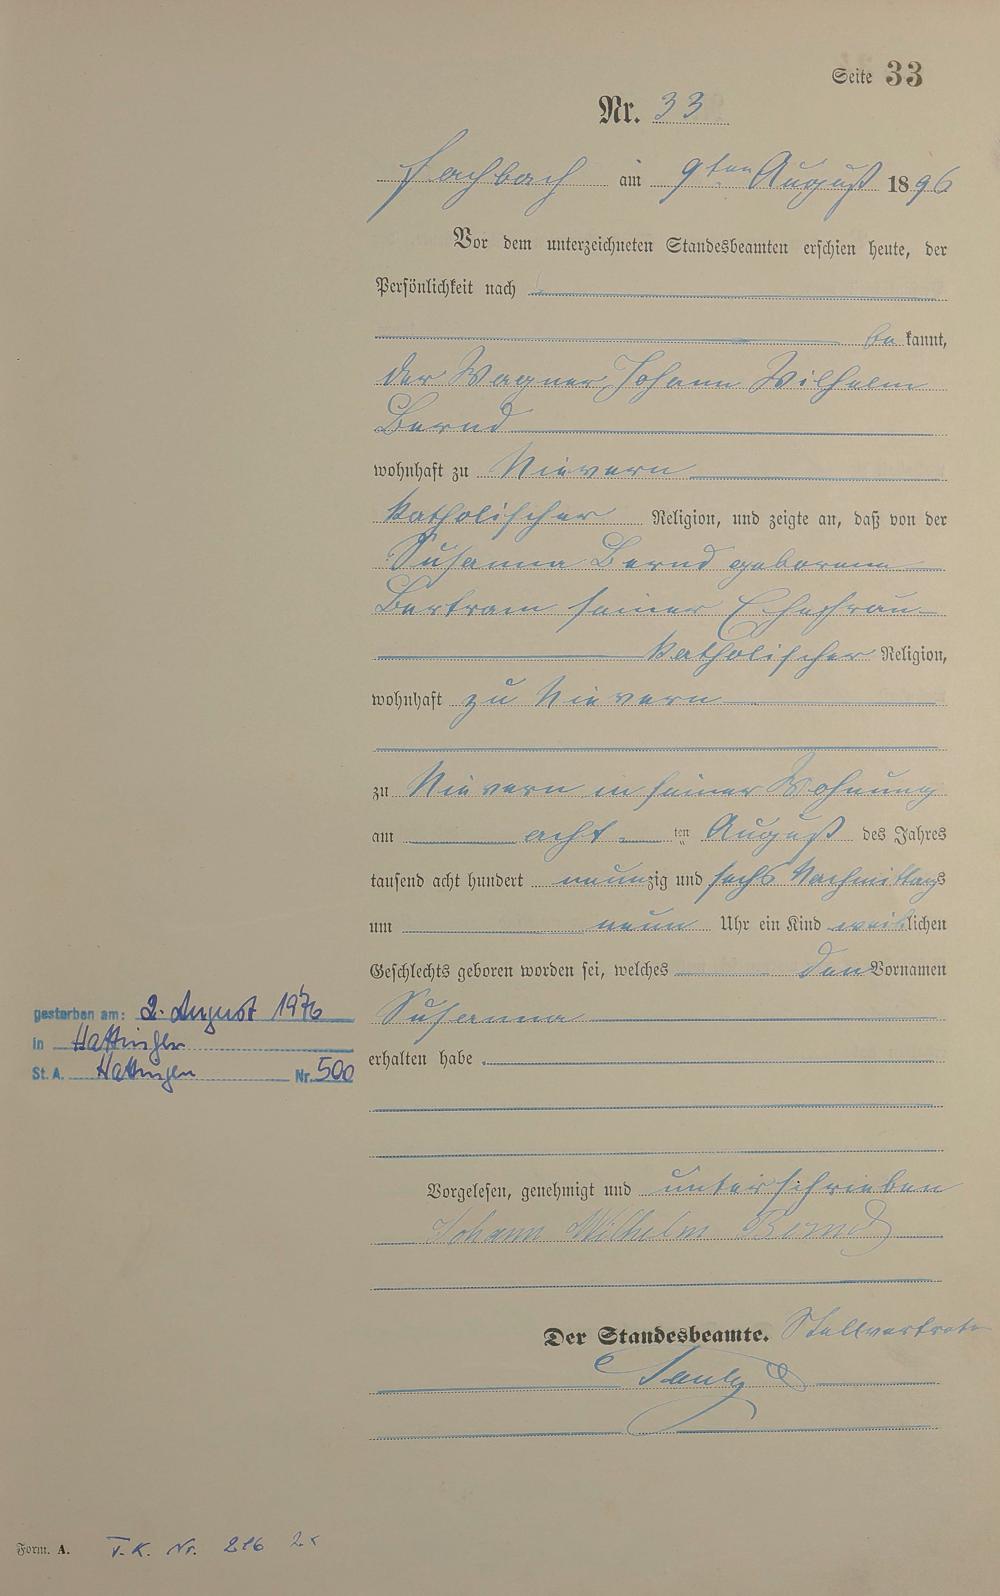 Seite 33
Nr. 33
Fachbach am 9ten August 1896
Vor dem unterzeichneten Standesbeamten erschien heute, der
Persönlichkeit nach
be kannt,
der Wagner Johann Wilhelm
Bernd
wohnhaft zu Nievern
katholischer Religion, und zeigte an, daß von der
Susanna Bernd geborene
Bertram seiner Ehefrau
katholischer Religion,
wohnhaft zu Nievern
zu Nievern in seiner Wohnung
am acht ten August des Jahres
tausend acht hundert neunzig und sechs Nachmittags
um neun Uhr ein Kind weiblichen
Geschlechts geboren worden sei, welches den Vornamen
Susanna
erhalten habe
gestorben am: 2. August 1976
in Hattingen
St. A. Hattingen Nr. 500
Vorgelesen, genehmigt und unterschrieben
Johann Wilhelm Bernd
Der Standesbeamte. Stellvertreter
Form. A. T.K. Nr. 216